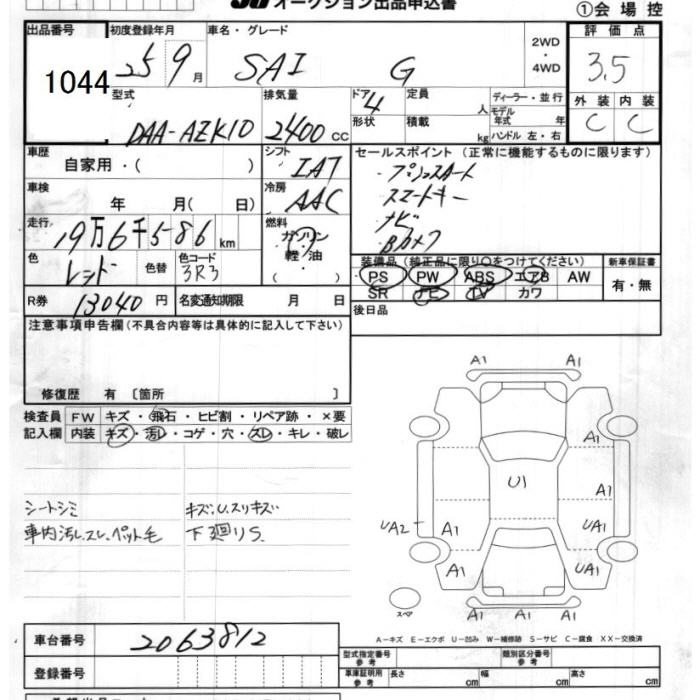 オークション出品申込書
①会場控
出品番号 初度登録年月 車名・グレード 2WD・4WD 評価点
1044 25 9月 SAI G 3.5
型式 排気量 ドア 定員 人 ディーラー・並行 外装 内装
DAA-AZK10 2400CC 4 形状 積載 kg モデル年式 年 ハンドル 左・右 C C
車歴 シフト セールスポイント (正常に機能するものに限ります)
自家用・( ) IAT プッシュスタート
車検 冷房 スマートキー
年 月( 日) AAC ナビ
走行 燃料 Bカメラ
19万6千586km ガソリン 軽・油
色 色替 色コード 装備品 (純正品に限り○をつけてください) 新車保証書
レッド 3R3 PS PW ABS エアB AW 有・無
SR ナビ TV カワ
R券 13040円 名変通知期限 月 日 後日品
注意事項申告欄(不具合内容等は具体的に記入して下さい)
修復歴 有 〔箇所 〕
検査員 FW キズ・飛石・ヒビ割・リペア跡・×要
記入欄 内装 キズ・汚レ・コゲ・穴・スレ・キレ・破レ
シートシミ キズ、U、スリキズ
車内汚レ、スレ、ペット毛 下廻りS
A1 A1
A1
U1
A1
UA2 A1 UA1
A1 UA1
A1 A1 A1
スペア
A-キズ E-エクボ U-凹み W-補修跡 S-サビ C-腐食 XX-交換済
車台番号 2063812
型式指定番号 参考 類別区分番号 参考
登録番号
車庫証明用 参考 長さ cm 幅 cm 高さ cm